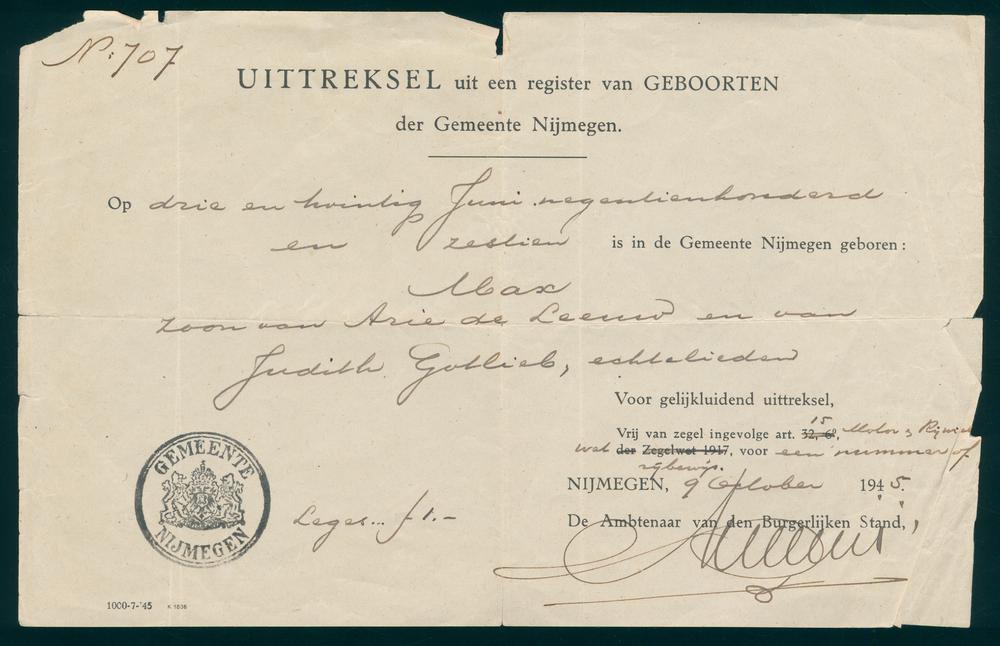 No: 707
UITTREKSEL uit een register van GEBOORTEN
der Gemeente Nijmegen.
Op drie en twintig Juni negentienhonderd
en zestien is in de Gemeente Nijmegen geboren:
Max
zoon van Arie de Leeuw en van
Judith Gotlieb, echtelieden
Voor gelijkluidend uittreksel,
15
Vrij van zegel ingevolge art. 32, 6º, Motor & Rijwiel
wet der Zegelwet 1917, voor een nummer of
rijbewijs.
NIJMEGEN, 9 October 1945.
De Ambtenaar van den Burgerlijken Stand,
Leges... f 1.-
GEMEENTE
NIJMEGEN
1000-7-'45 K 1636